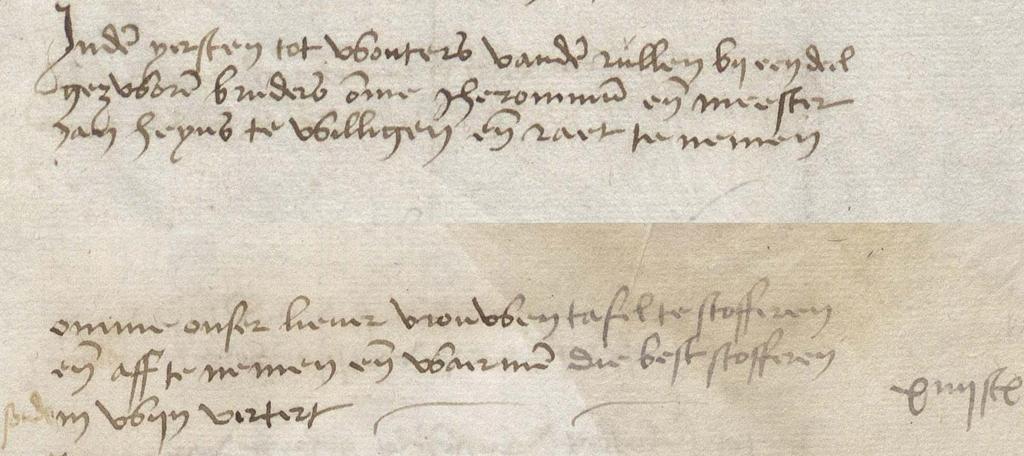 Indē yersten tot Wouters vandē rullen bij een deel
gezworē brueders ōme Jheronimū eñ meester
Jan Heyns te willigen eñ raet te nemen
omme onser liever vrouwen tafel te stofferen
eñ aff te nemen eñ waermē die best stofferen
in wijn vertert